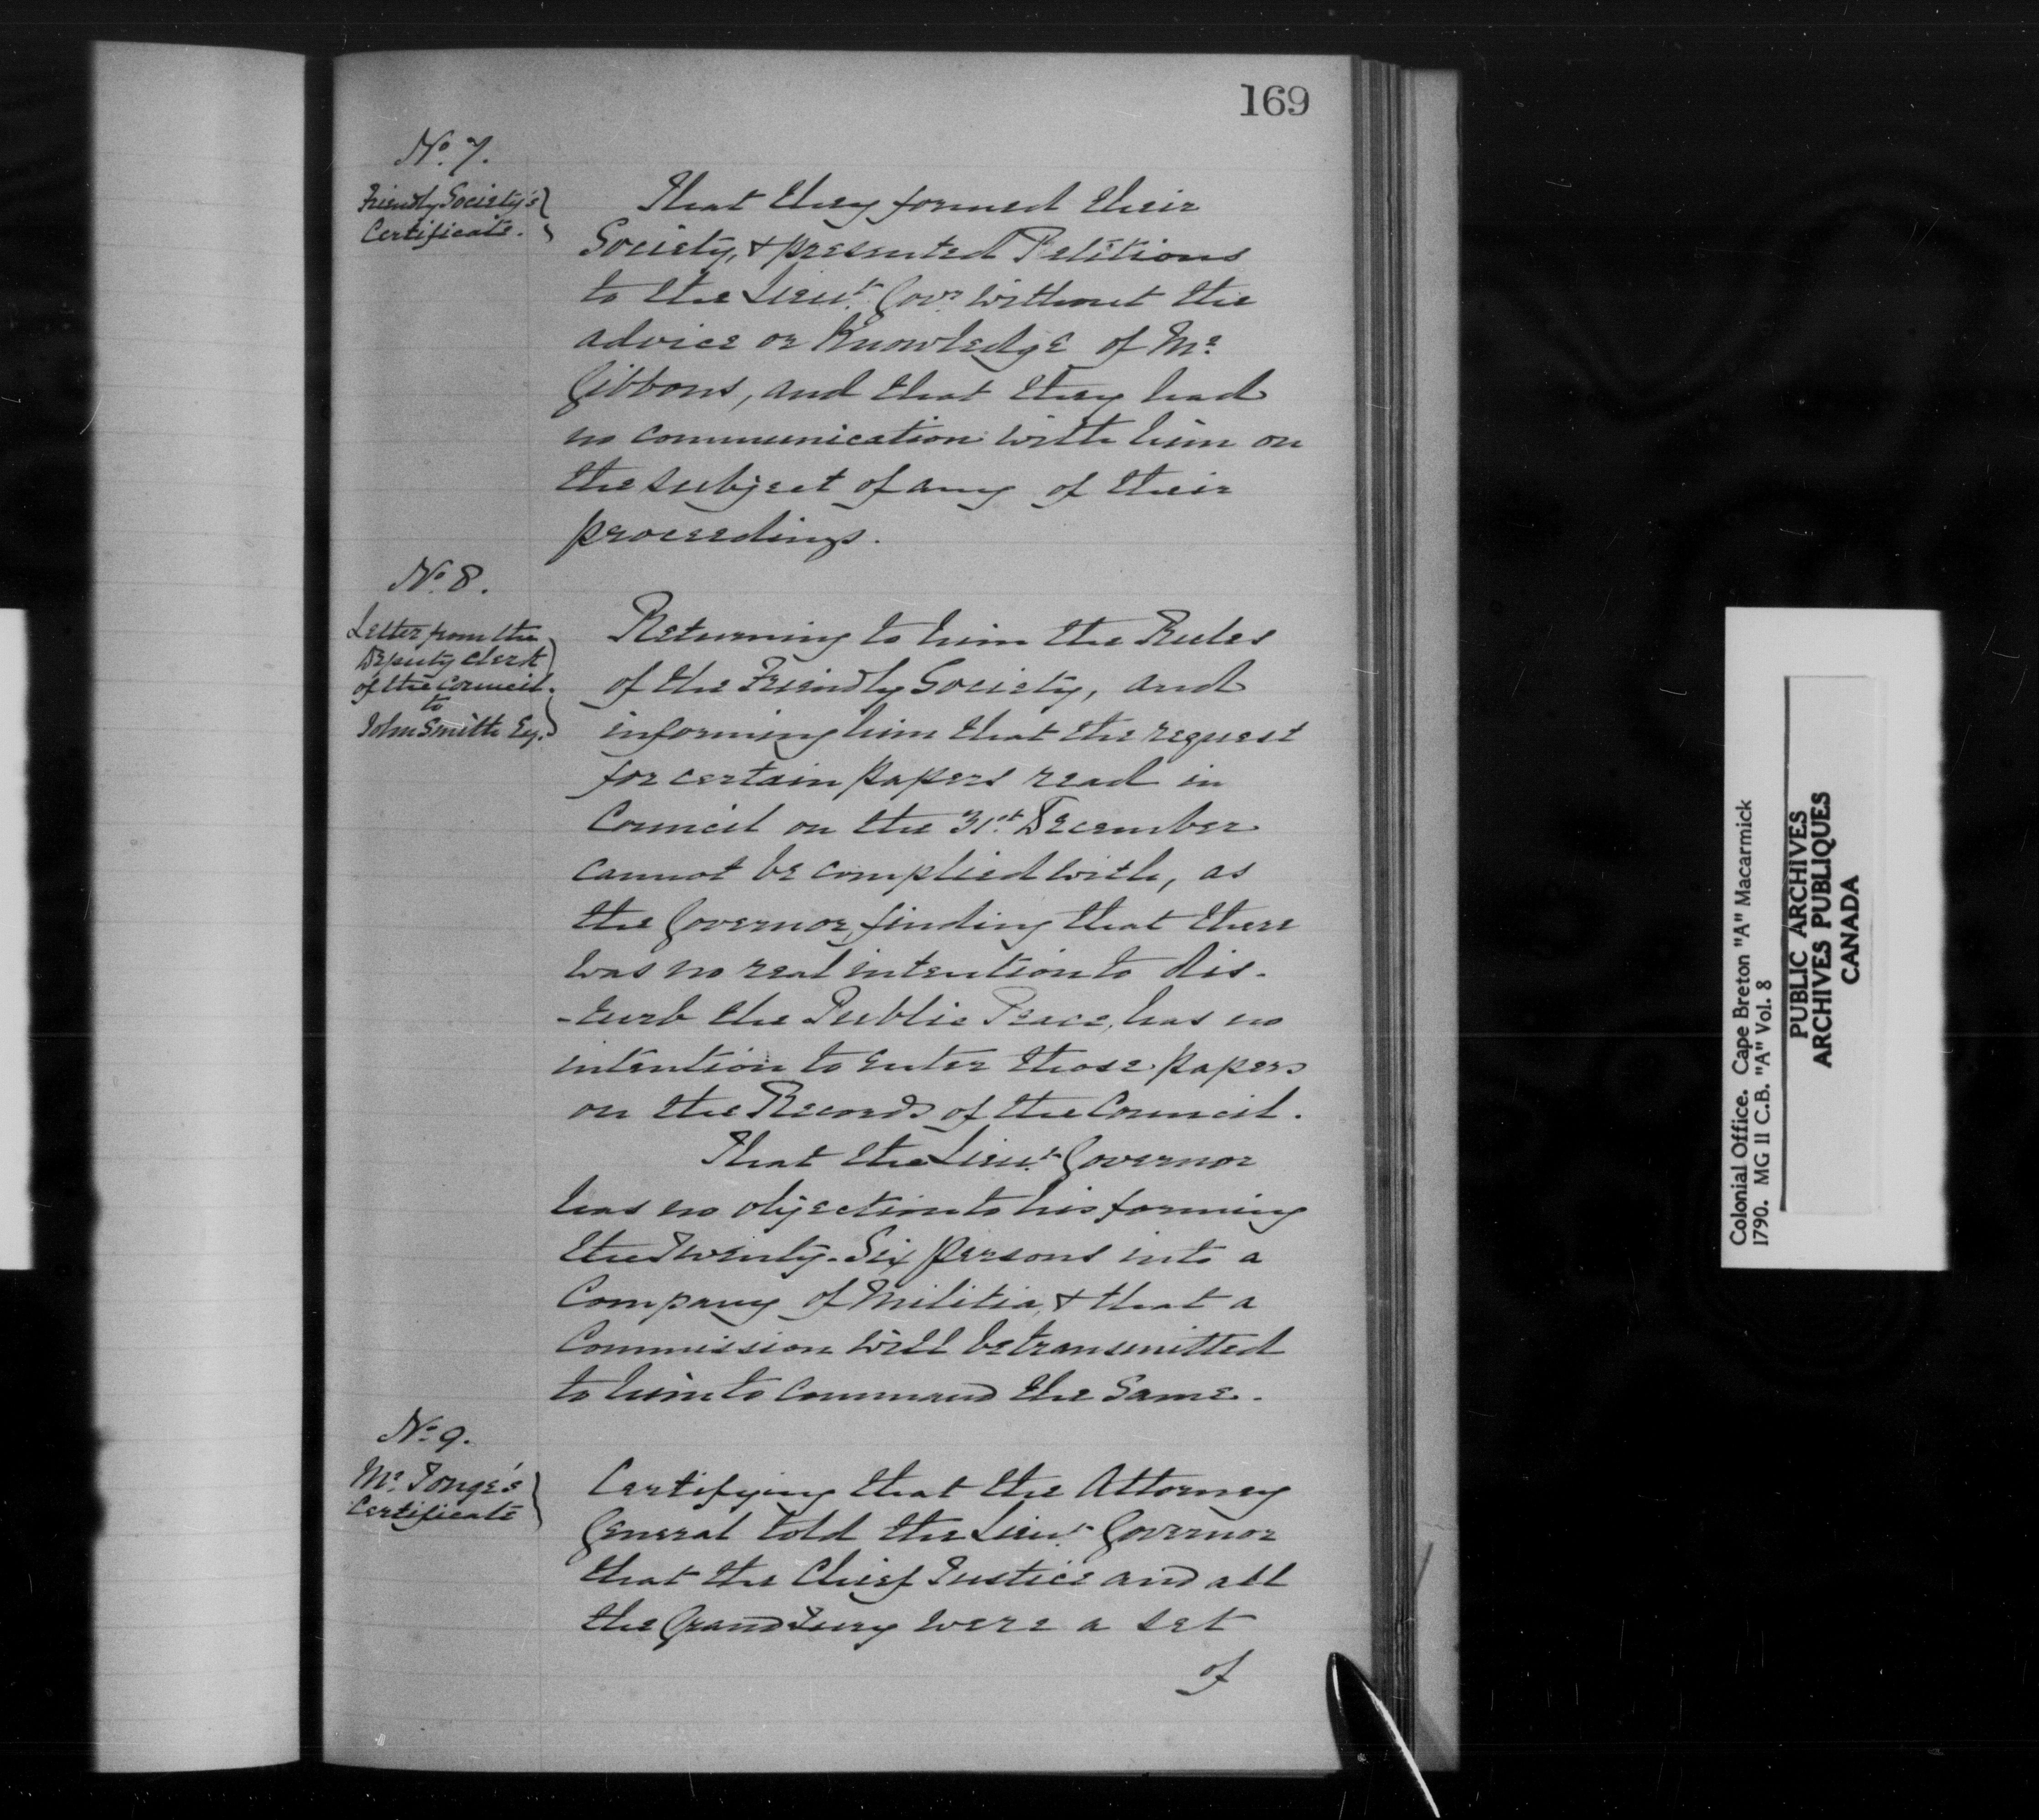 169
No. 7.
Friendly Society's
Certificate.
That they formed their
Society, & presented Petitions
to the Lieut. Govr. without the
advice or Knowledge of Mr.
Gibbons, and that they had
no communication with him on
the subject of any of their
proceedings.
No. 8.
Letter from the
Deputy Clerk
of the Council
to
John Smith Esq.
Returning to him the Rules
of the Friendly Society, and
informing him that the request
for certain papers read in
Council on the 31st. December
cannot be complied with, as
the Governor, finding that there
was no real intention to dis-
-turb the Public Peace, has no
intention to enter those papers
on the Records of the Council.
That the Lieut. Governor
has no objection to his forming
the Twenty-Six persons into a
Company of Militia, & that a
Commission will be transmitted
to him to command the same.
No. 9.
Mr. Tonge's
Certificate
Certifying that the Attorney
General told the Lieut. Governor
that the Chief Justice and all
the Grand Jury were a set
of
Colonial Office. Cape Breton "A" Macarmick
1790. MG II C.B. "A" Vol. 8
PUBLIC ARCHIVES
ARCHIVES PUBLIQUES
CANADA